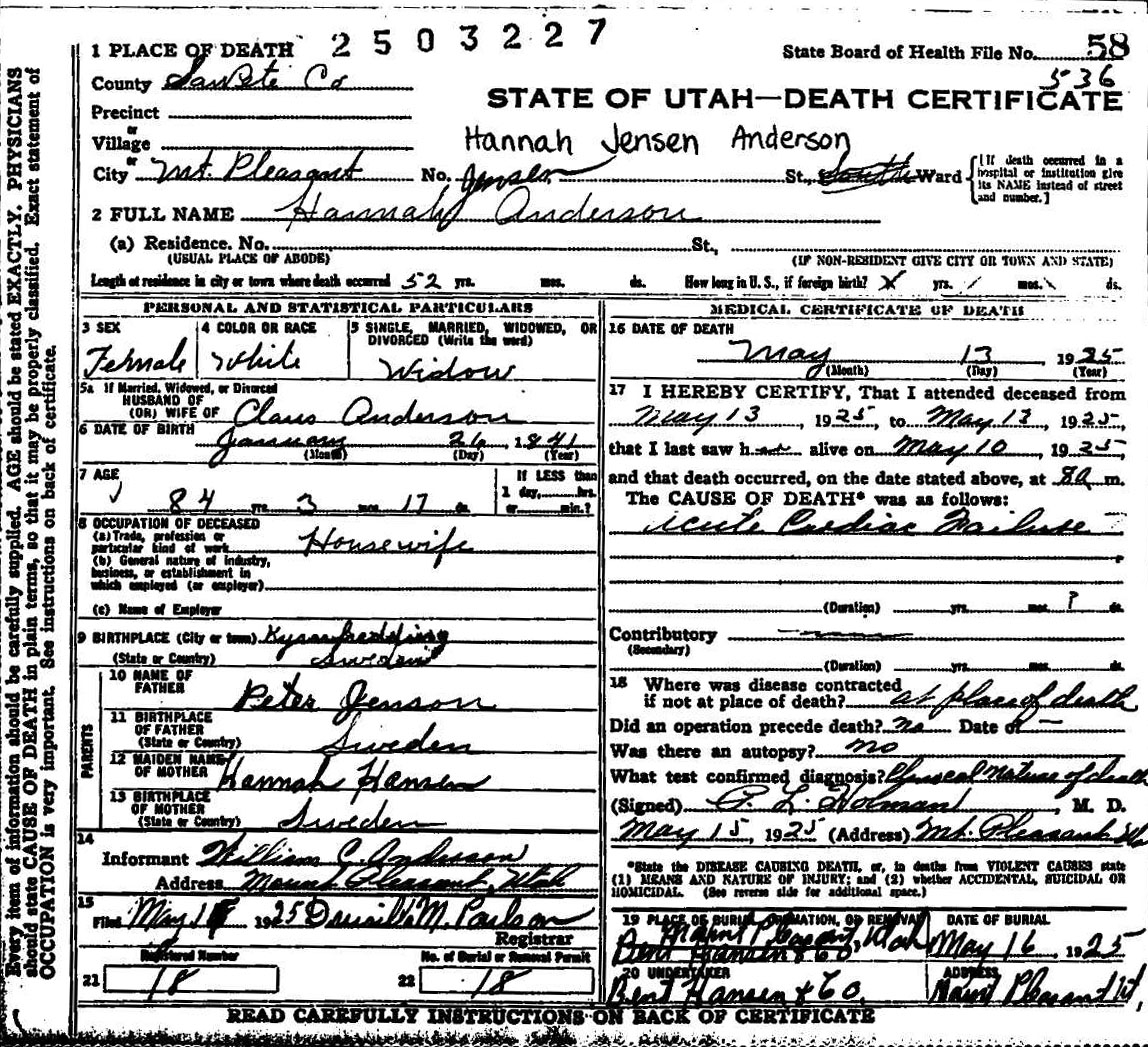 2503227
1 PLACE OF DEATH
State Board of Health File No. 58
536
County SanPete Co
STATE OF UTAH—DEATH CERTIFICATE
Precinct
or
Village
Hannah Jensen Anderson
or
City Mt. Pleasant No. Jensen St., Ward
[If death occurred in a hospital or institution give its NAME instead of street and number.]
2 FULL NAME Hannah Anderson
(a) Residence. No. St.,
(USUAL PLACE OF ABODE) (IF NON-RESIDENT GIVE CITY OR TOWN AND STATE)
Length of residence in city or town where death occurred 52 yrs. mos. ds. How long in U. S., if foreign birth? X yrs. / mos. \ ds.
PERSONAL AND STATISTICAL PARTICULARS
3 SEX
Female
4 COLOR OR RACE
White
5 SINGLE, MARRIED, WIDOWED, OR
DIVORCED (Write the word)
Widow
5a If Married, Widowed, or Divorced
HUSBAND OF
(OR) WIFE OF Claus Anderson
6 DATE OF BIRTH January 26, 1841
(Month) (Day) (Year)
7 AGE
84 yrs. 3 mos. 17 ds.
If LESS than
1 day, hrs.
or min.?
8 OCCUPATION OF DECEASED
(a) Trade, profession or
particular kind of work Housewife
(b) General nature of industry,
business, or establishment in
which employed (or employer)
(c) Name of Employer
9 BIRTHPLACE (City or town)
(State or Country) Sweden
PARENTS
10 NAME OF
FATHER Peter Jenson
11 BIRTHPLACE
OF FATHER
(State or Country) Sweden
12 MAIDEN NAME
OF MOTHER Hannah Hansen
13 BIRTHPLACE
OF MOTHER
(State or Country) Sweden
14
Informant William C. Anderson
Address Mount Pleasant, Utah
15
Filed May 1925 M.
Registrar
Registered Number
21 18
No. of Burial or Removal Permit
22 18
MEDICAL CERTIFICATE OF DEATH
16 DATE OF DEATH
May 13 1925
(Month) (Day) (Year)
17 I HEREBY CERTIFY, That I attended deceased from
May 13, 1925, to May 13, 1925,
that I last saw her alive on May 10, 1925,
and that death occurred, on the date stated above, at 8a m.
The CAUSE OF DEATH* was as follows:
Acute Cardiac Failure
(Duration) yrs. mos. ? ds.
Contributory
(Secondary)
(Duration) yrs. mos. ds.
18 Where was disease contracted
if not at place of death? at place of death
Did an operation precede death? no Date of —
Was there an autopsy? no
What test confirmed diagnosis? nature of death
(Signed) P. L. Holman, M. D.
May 15, 1925 (Address) Mt. Pleasant
*State the DISEASE CAUSING DEATH, or, in deaths from VIOLENT CAUSES state
(1) MEANS AND NATURE OF INJURY; and (2) whether ACCIDENTAL, SUICIDAL OR
HOMICIDAL. (See reverse side for additional space.)
19 PLACE OF BURIAL, CREMATION, OR REMOVAL DATE OF BURIAL
Mount Pleasant, Utah
Bent Hansen & Co. May 16, 1925
20 UNDERTAKER ADDRESS
Bent Hansen & Co. Mount Pleasant Ut
READ CAREFULLY INSTRUCTIONS ON BACK OF CERTIFICATE
Every item of information should be carefully supplied. AGE should be stated EXACTLY. PHYSICIANS
should state CAUSE OF DEATH in plain terms, so that it may be properly classified. Exact statement of
OCCUPATION is very important. See instructions on back of certificate.